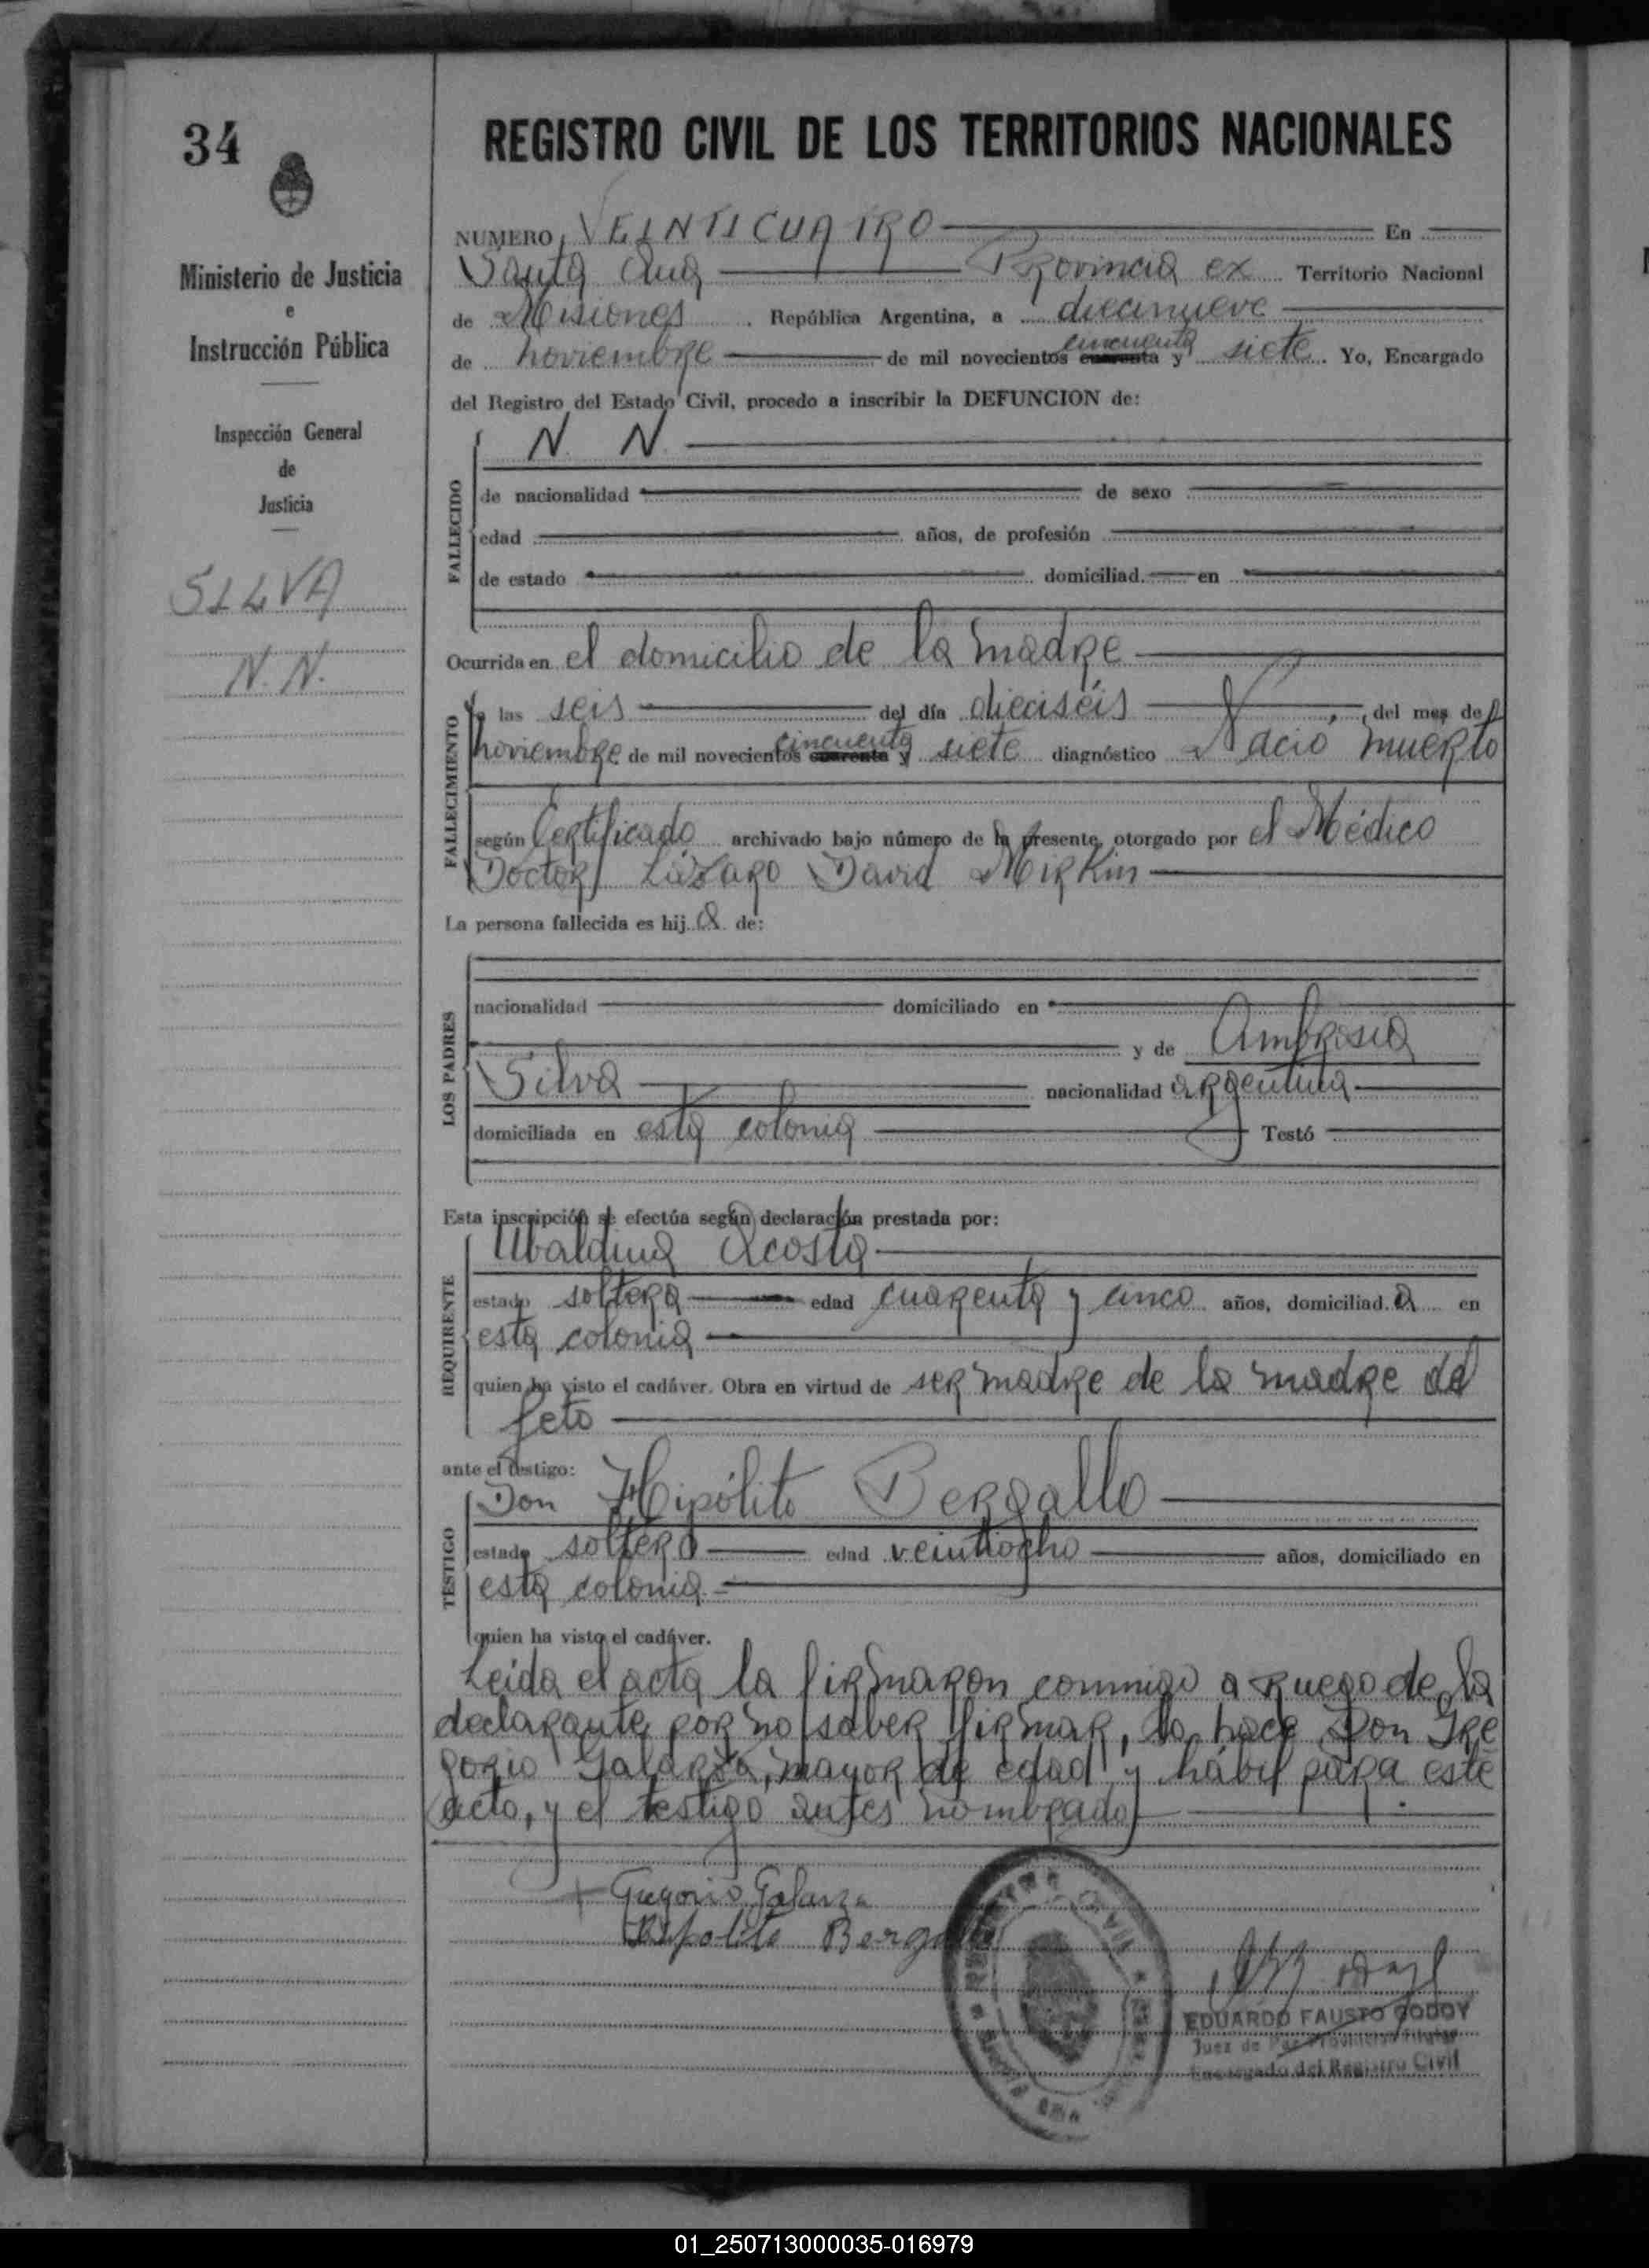 34
Ministerio de Justicia
e
Instrucción Pública
Inspección General
de
Justicia
SILVA
N. N.
REGISTRO CIVIL DE LOS TERRITORIOS NACIONALES
NUMERO VEINTICUATRO En
Santa Ana Provincia ex Territorio Nacional
de Misiones. República Argentina, a diecinueve
de noviembre de mil novecientos cincuenta cuarenta y siete. Yo, Encargado
del Registro del Estado Civil, procedo a inscribir la DEFUNCION de:
FALLECIDO
N. N.
de nacionalidad de sexo
edad años, de profesión
de estado domiciliad en
Ocurrida en el domicilio de la madre
FALLECIMIENTO
a las seis del día dieciséis del mes de
noviembre de mil novecientos cincuenta cuarenta y siete diagnóstico Nació muerto
según Certificado archivado bajo número de la presente, otorgado por el Médico
Doctor Lázaro David Mirkin
La persona fallecida es hij a de:
LOS PADRES
nacionalidad domiciliado en
y de Ambrosia
Silva nacionalidad argentina
domiciliada en esta colonia Testó
Esta inscripción se efectúa según declaración prestada por:
REQUIRENTE
Ubaldina Acosta
estado soltera edad cuarenta y cinco años, domiciliad a en
esta colonia
quien ha visto el cadáver. Obra en virtud de ser madre de la madre del
feto
ante el testigo:
TESTIGO
Don Hipólito Bergallo
estado soltero edad veintiocho años, domiciliado en
esta colonia
quien ha visto el cadáver.
Leída el acta la firmaron conmigo a ruego de la
declarante por no saber firmar, lo hace Don Gre
gorio Galarza, mayor de edad y hábil para este
acto, y el testigo antes nombrado
Gregorio Galarza
Hipolito Bergallo
REGISTRO CIVIL
SANTA ANA
EDUARDO FAUSTO GODOY
Juez de Paz Provincial Titular
Encargado del Registro Civil
01_250713000035-016979